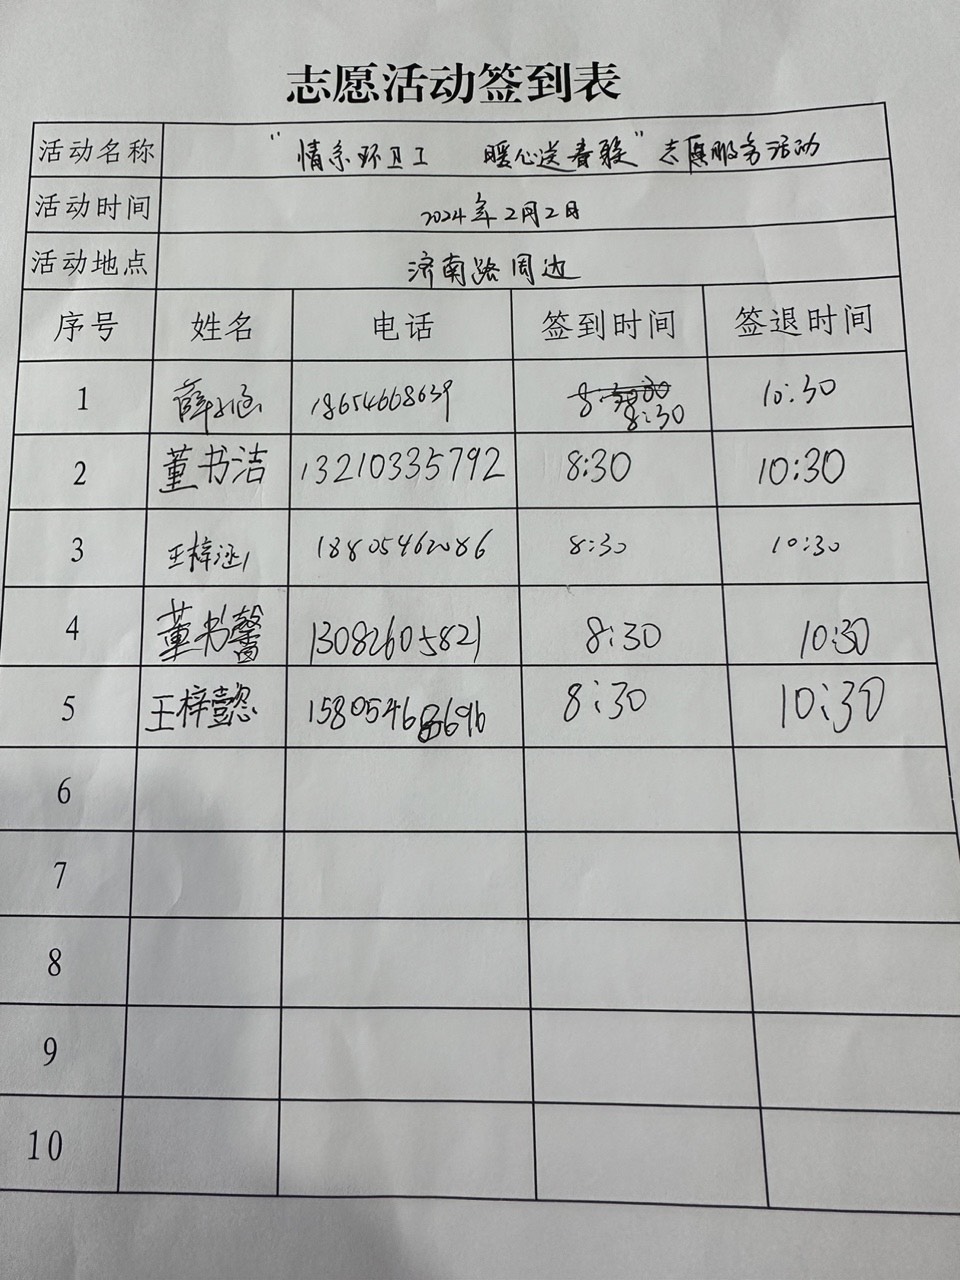 志愿活动签到表
活动名称 "情系环卫工 暖心送春联"志愿服务活动
活动时间 2024年2月2日
活动地点 济南路周边
序号 姓名 电话 签到时间 签退时间
1 薛 18654668639 8:30 10:30
2 董书洁 13210335792 8:30 10:30
3 王梓涵 18805462086 8:30 10:30
4 董书馨 13082605821 8:30 10:30
5 王梓懿 15805468696 8:30 10:30
6
7
8
9
10